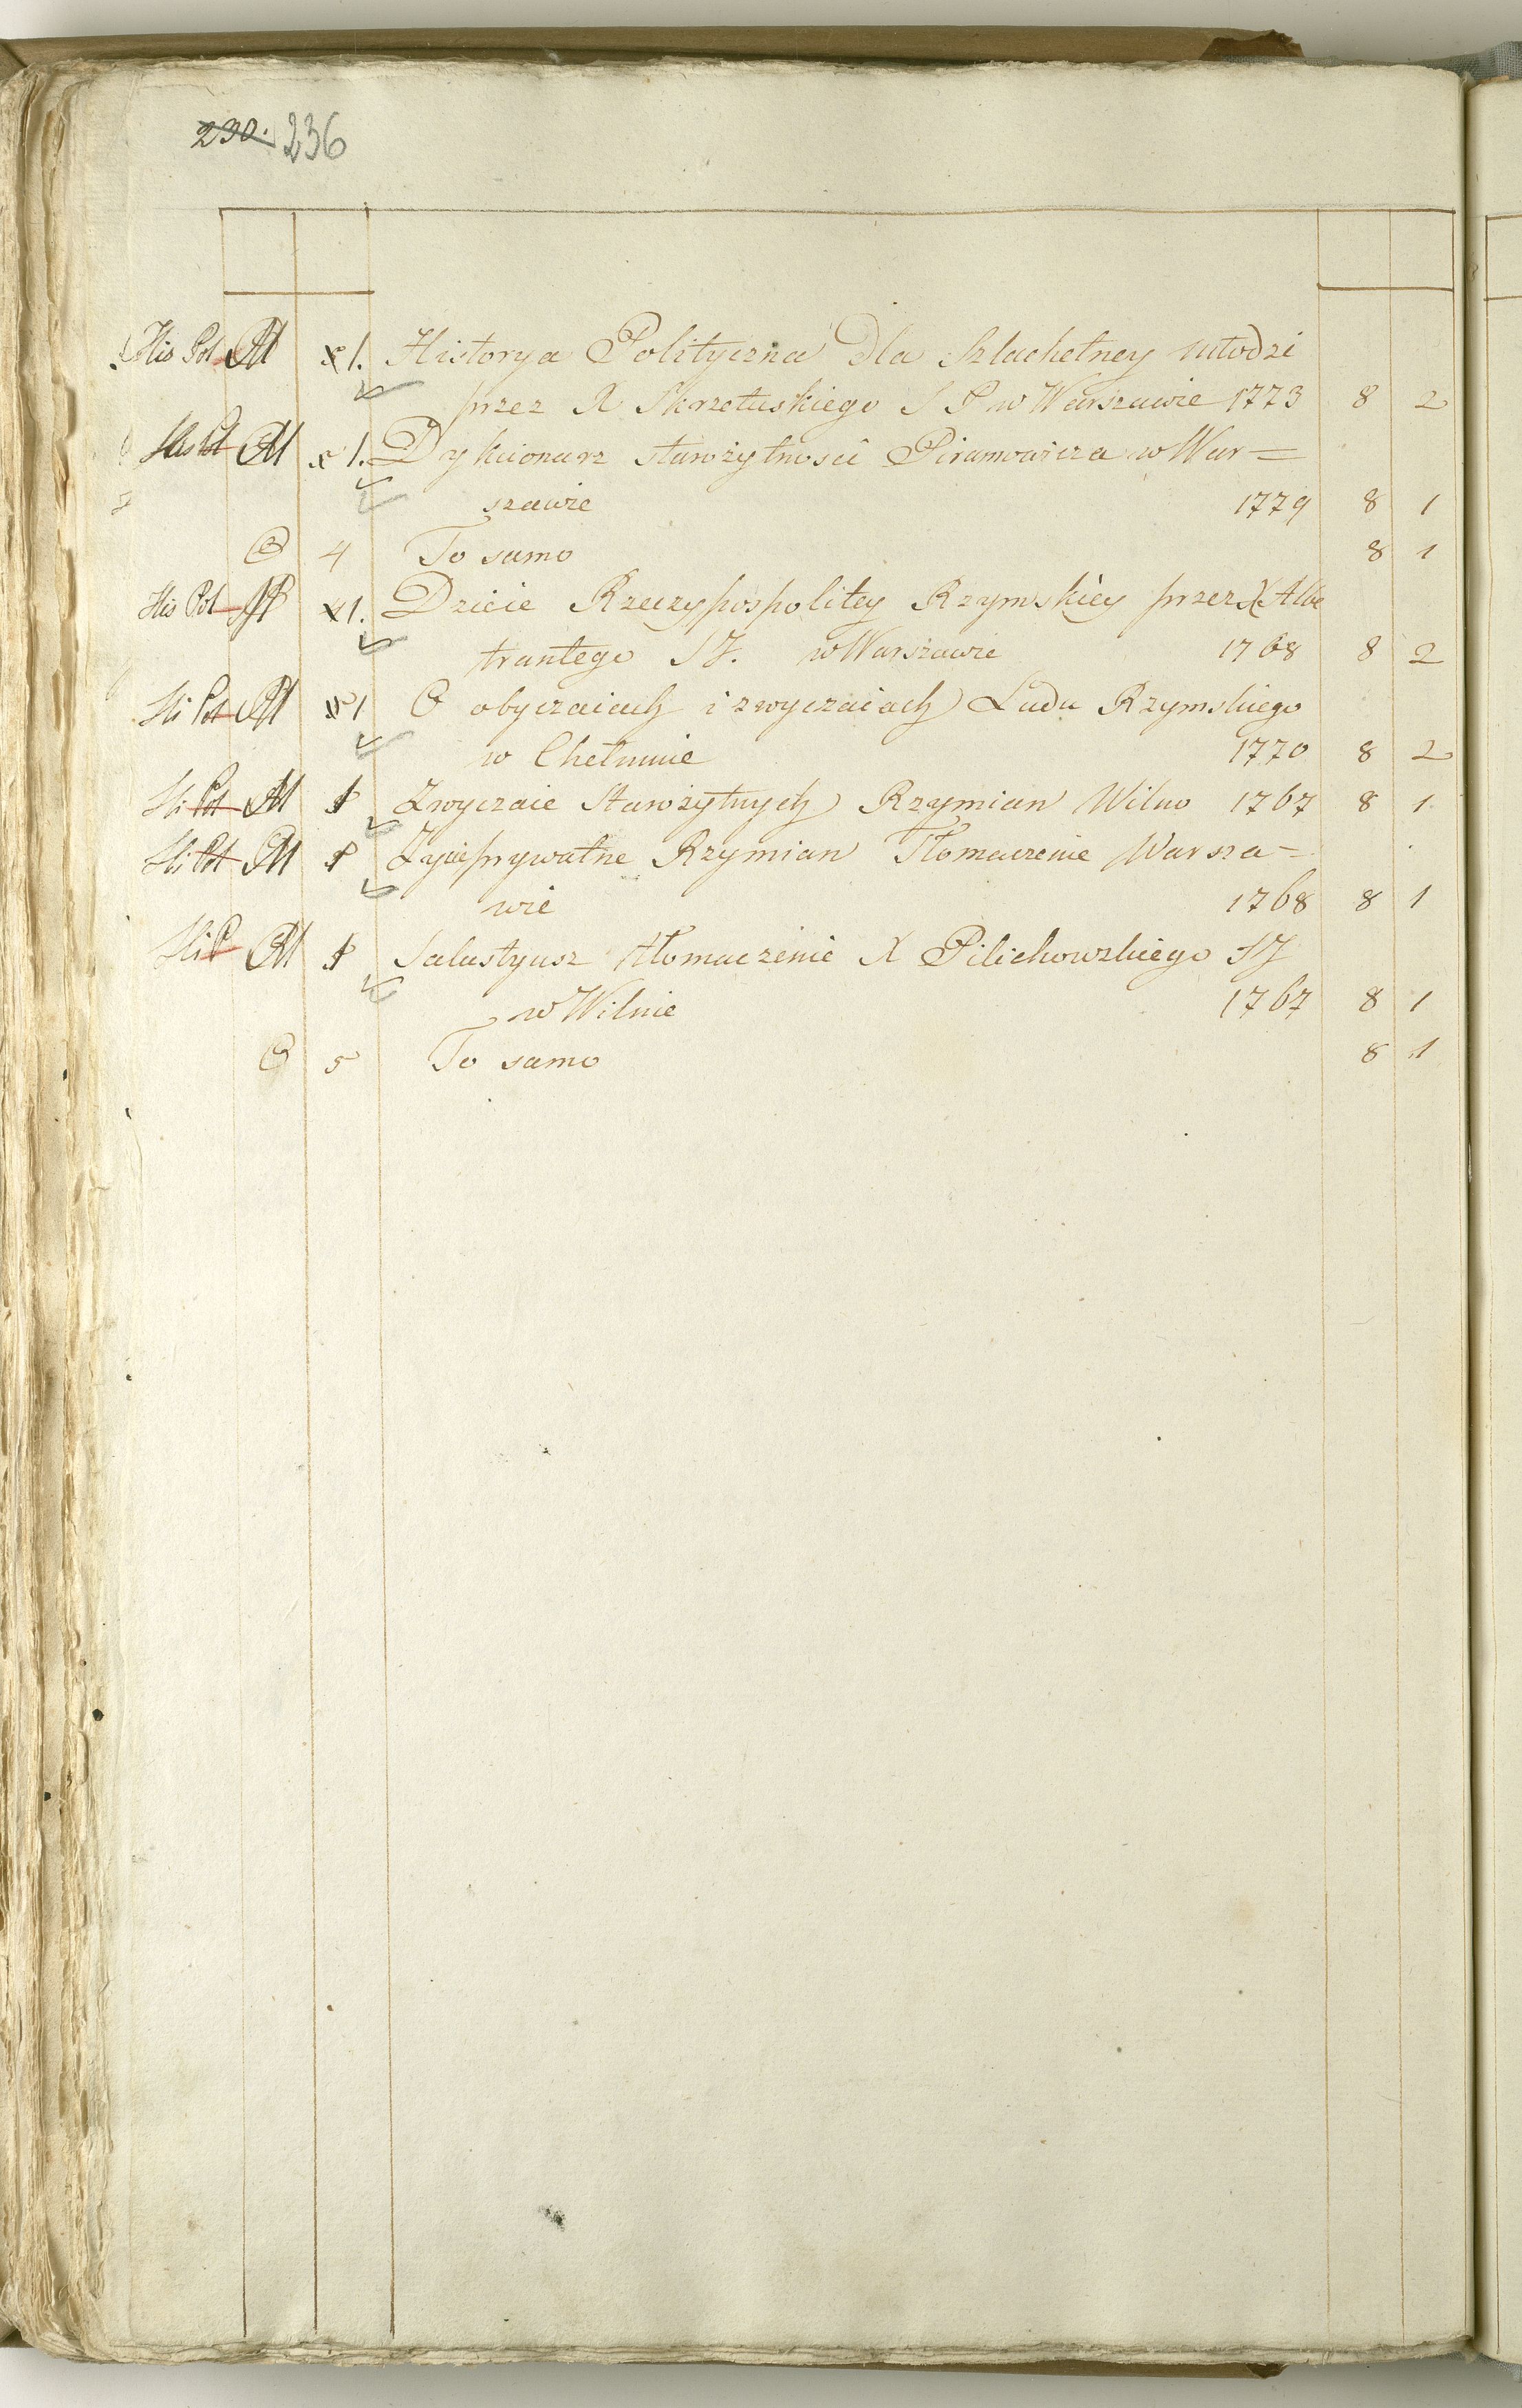 230. 236
His Pol M x1. Historya Polityczna dla szlachetney młodzi
przez X Skrzetuskiego S P w Warszawie 1773 8 2
His Pol M 1. Dykcionarz starożytności Piramowicza w War=
szawie 1779 8 1
4 To samo 8 1
His Pol x1. Dzieie Rzeczypospolitey Rzymskiey przez X Albe
trantego SJ. w Warszawie 1768 8 2
Hi Pol M 1 O obyczaiach i zwyczaiach Ludu Rzymskiego
w Chełmnie 1770 8 2
Hi Pol M 1 Zwyczaie starożytnych Rzymian Wilno 1767 8 1
Hi Pol M 1 Zycie prywatne Rzymian Tłomaczenie Warsza=
wie 1768 8 1
Hi P M 1 Salustyusz tłomaczenie X Pilichowskiego SJ
w Wilnie 1767 8 1
5 To samo 8 1